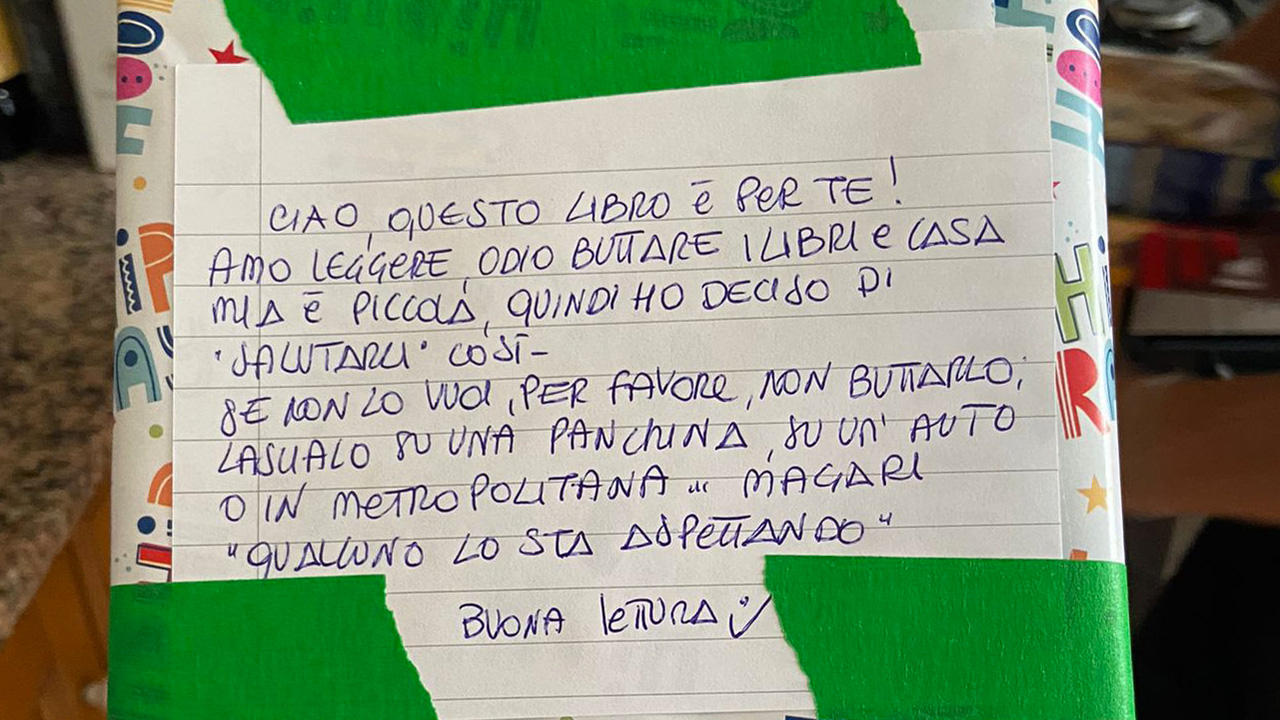 CIAO, QUESTO LIBRO È PER TE!
AMO LEGGERE, ODIO BUTTARE I LIBRI E CASA
MIA È PICCOLA, QUINDI HO DECISO DI
"SALUTARLI" COSÌ-
SE NON LO VUOI, PER FAVORE, NON BUTTARLO;
LASCIALO SU UNA PANCHINA, SU UN' AUTO
O IN METROPOLITANA... MAGARI
"QUALCUNO LO STA ASPETTANDO"
BUONA LETTURA :)